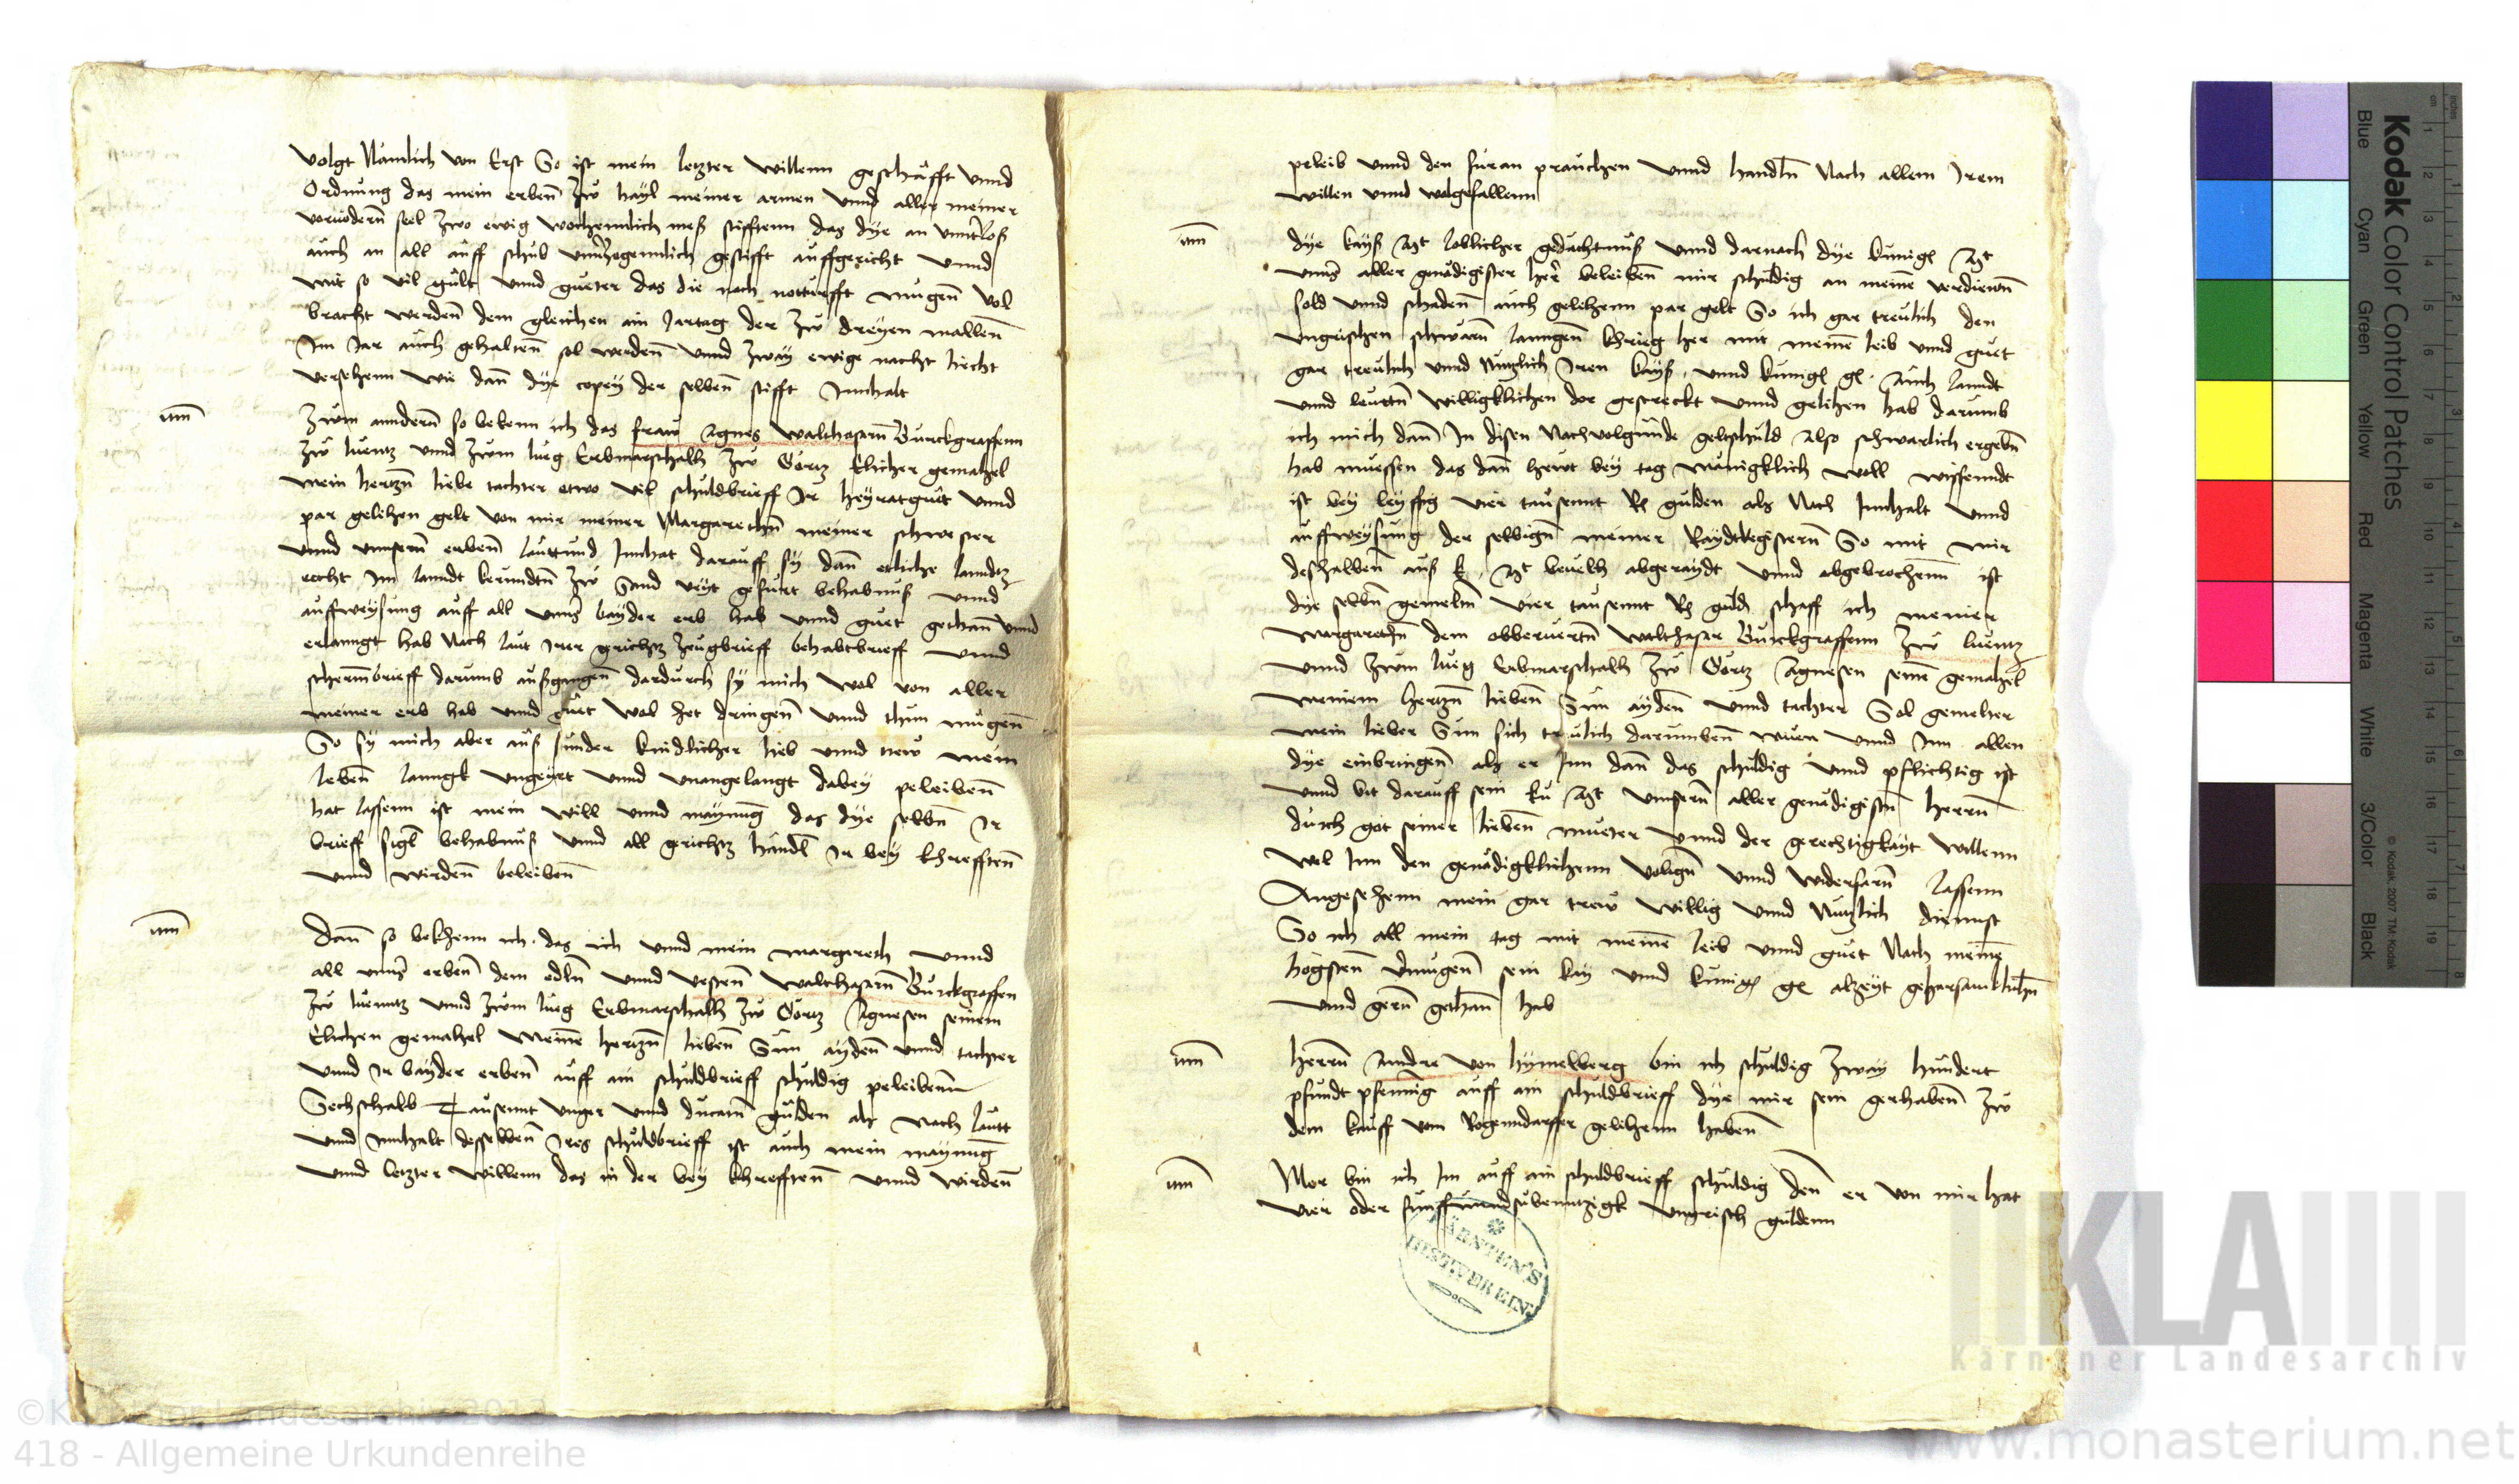 volgt Namlich von Erst So ist mein letzter willenn geschäfft vnnd
Ordnung das mein erbenn zw hayl meiner armen vnnd aller meiner
vorvodern seel zwo ewig wochennlich meß stifftenn das dye an vnnterloß
auch an all auff schub vnuerzogennlich gestifft auffgericht vnnd
mit so vil gült vnnd gueter das die nach notturfft mugenn vol
bracht werdenn dem gleichen ain Jartag der zw dreyen mallenn
Im Jar auch gehaltenn sol werdenn vnnd zway ewige nacht liecht
versehenn wie dan dye copey der selbenn stifft Innhalt
itm
Zwm anndern so bekenn ich das fraw Agnes walthasarn Burckgraffenn
zw luentz vnnd zwm lueg Erbmarschalh zw Görtz Elicher gemahel
mein hertzn liebe tachter etwo vil schuldbrieff Ir heyratguet vnnd
par gelihen gelt von mir meiner Margarethn meiner schwester
vnnd vnnsern erbenn lauttund Innhat darauff sy dan etliche lanndtz
recht Im lanndt kernndtn zw Sand veyt gefurt behabnuß vnnd
auffweysung auff all vnnser bayder erb hab vnnd guet gethann vnnd
erlanngt hab Nach laut Irer grichtz zeugbrieff behabtbrieff vnnd
schermbrieff darumb außganngen dardurch sy mich wol von aller
meiner erb hab vnnd guet wol het dringenn vnnd thun mugenn
So sy mich aber auß sunder kindlicher lieb vnnd trew mein
lebenn lanngk vngeyrt vnnd vnangelangt dabey peleibenn
hat lassenn ist mein will vnnd maynung das dye selbn Ir
brieff sigl behabnuß vnnd all grichtz hanndl Ir bey khrefftenn
vnnd wirdenn beleibenn
itm
Dann so bekhenn ich das ich vnnd mein margareth vnnd
all vnnser erbenn dem edln vnnd vestenn walthasarn Burckgraffen
zw luenntz vnnd zwm lueg Erbmarschalh zw Görtz Agnesen seinem
Elichen gemahel Meinen hertzn liebenn Sun ayden vnnd tachter
vnnd Ir bayder erbenn auff ain schuldbrieff schuldig peleibenn
Sechschalb Tausennt vnger vnnd ducatn gulden als nach lautt
vnnd Innhalt desselbenn Ires schuldbrieff ist auch mein maynung
vnnd letzter willenn das in der bey khrefftenn vnnd wirdenn
peleib vnnd den furan prauchen vnnd handln Nach allem Irem
willen vnnd wolgefallenn
itm
dye kayß Mt loblicher gedachtnuß vnnd darnach dye kunigl Mt
vnnser aller genädigister herr beleibenn mir schuldig an meinem verdientn
sold vnnd schadenn auch gelihenn par gelt So ich gar treulich den
vngrischen schwarn lanngen khrieg her mit meinem leib vnnd guet
gar treulich vnnd Nutzlich Iren kayß vnnd kunigl gl auch lanndt
vnnd leuttn willigklichen dar gestreckt vnnd gelihen hab darumb
ich mich dann In disen Nachvolgunde geltschuld Also schwarlich ergebn
hab muessen das dann hewt bey tag manigklich woll wissenndt
ist bey leyfftig vier tausennt R gulden als Nach Innhalt vnnd
auffweysung der selbign meiner Raydtregistern So mit mir
deshalbenn auß k Mt beuelh abgeraydt vnnd abgebrochenn ist
dye selbn gemeltn vier tausennt R guld schaff ich meiner
margarethn dem obberuertn walthasar Burckgraffenn zw luentz
vnnd zwm lueg Erbmarschalh zw Görtz Agnesen seinem gemahel
meinem hertzn liebenn Sun aydenn vnnd tachter Sol gemelter
mein lieber Sun sich treulich darumbenn muen vnnd Inn allen
dye einbringenn als er Inn dann das schuldig vnnd pflichtig ist
vnnd bit darauff sein ku Mt vnnsern aller genädigistn herrnn
durch got seiner liebenn mueter vnnd der gerechtigkayt willenn
wel Inn den genädigklichenn volign vnnd widerfarn lassenn
Angesehenn mein gar trew willig vnnd Nutzlich dienst
So ich all mein tag mit meinem leib vnnd guet Nach meinem
högstenn vermugenn sein kay vnnd kunigl gl alzeyt gehorsamklichn
vnnd gern gethann hab
itm
herrnn Andre von hymelberg bin ich schuldig zway hundert
pfundt pfenning auff ain schuldbrieff dye mir sein gerhabenn zw
dem kauff vom Rogenndarffer gelihenn habenn
itm
Mer bin ich Im auff ain schuldbrieff schuldig den er von mir hat
vier oder funffunndsubenntzigk vngrisch guldenn
KÄRNTEN'S
GESCH. VEREIN
Kodak Color Control Patches
© Kodak, 2007 TM: Kodak
Blue Cyan Green Yellow Red Magenta White 3/Color Black
inches 1 2 3 4 5 6 7 8
cm 1 2 3 4 5 6 7 8 9 10 11 12 13 14 15 16 17 18 19
KLA
Kärntner Landesarchiv
©Kärntner Landesarchiv 2013
418 - Allgemeine Urkundenreihe
www.monasterium.net